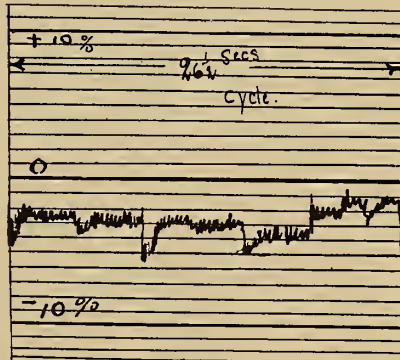 +10%
26½ Secs
Cycle.
0
-10%